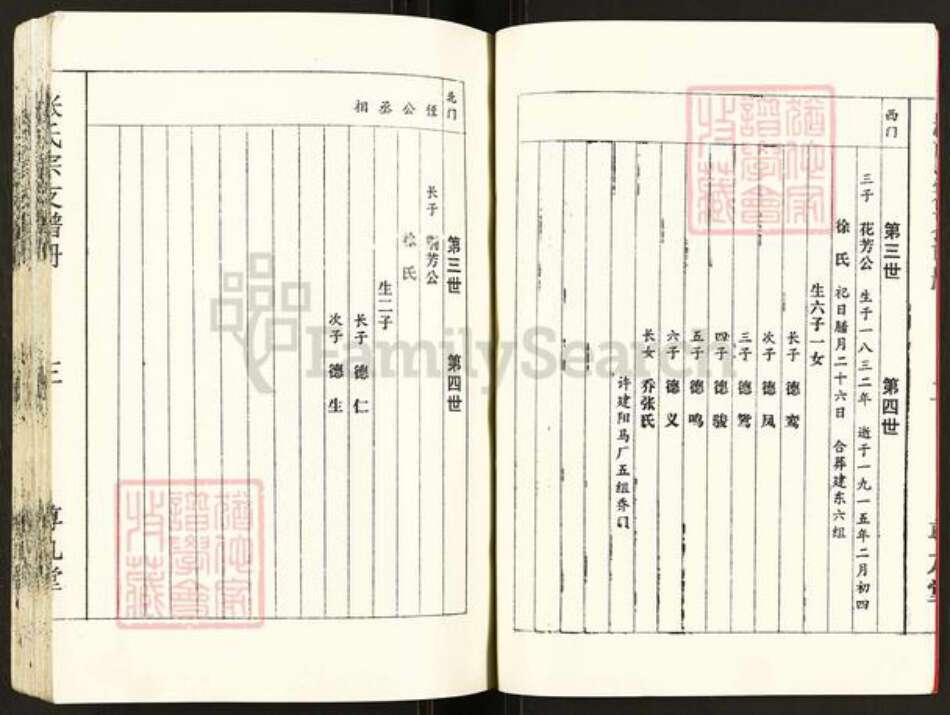 西门
第三世 第四世
三子 花芳公 生于一八三二年 逝于一九一五年二月初四
徐氏 祀日腊月二十六日 合葬建东六组
生六子一女
长子 德鸾
次子 德凤
三子 德鸳
四子 德骏
五子 德鸣
六子 德义
长女 乔张氏
许建阳马厂五组乔门
北门
第三世 第四世
径公丞相
长子 芳公
徐氏
生二子
长子 德仁
次子 德生
张氏宗支谱册
三
尊九堂
FamilySearch